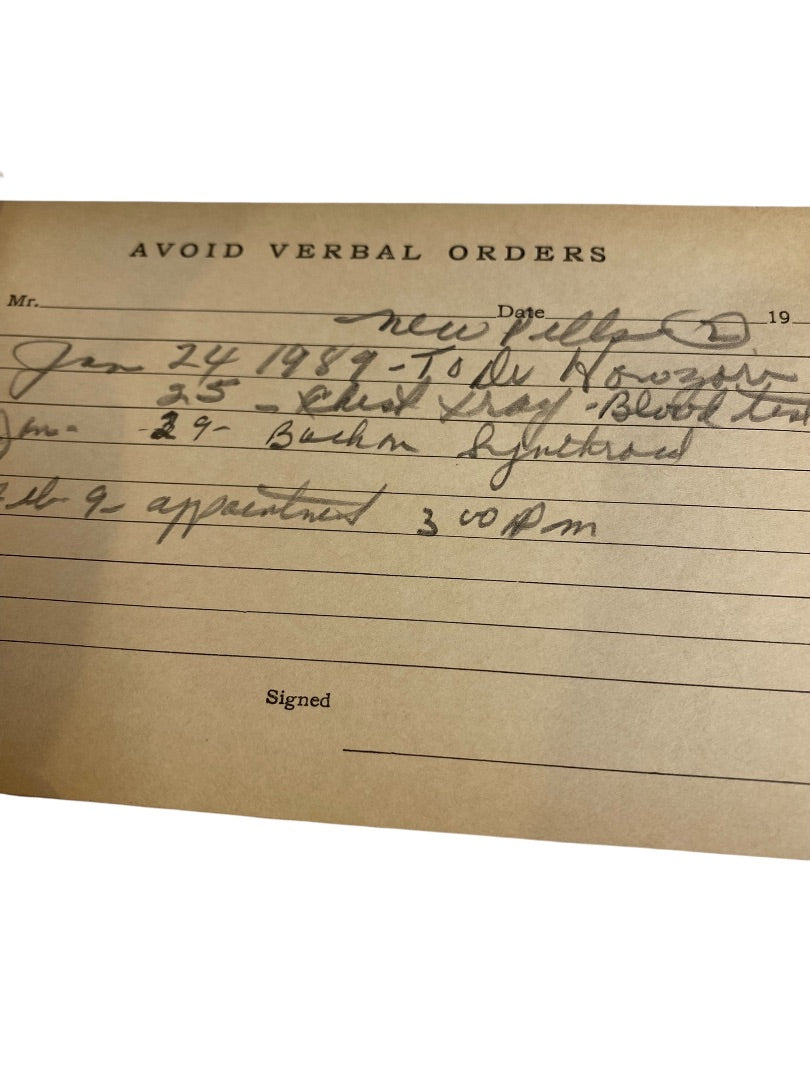 AVOID VERBAL ORDERS
Mr. Date 19
new Pills 2
Jan 24 1989 - To Dr
25 - Chest xray - Blood test
Jan - 29 - Back on Synthroid
Feb 9 - appointment 3 00 Pm
Signed